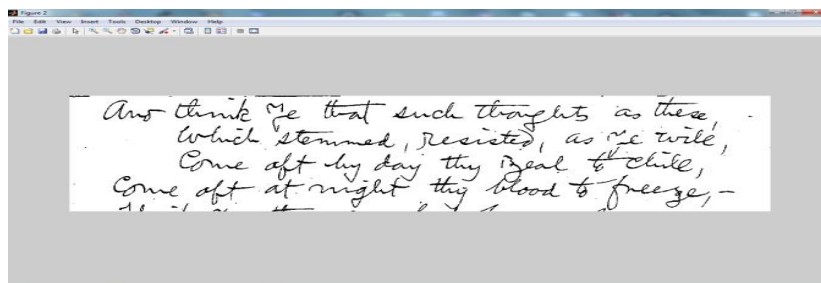 Figure 2
File Edit View Insert Tools Desktop Window Help
And think ye that such thoughts as these,
Which stemmed, resisted, as ye will,
Come oft by day thy zeal to chill,
Come oft at night thy blood to freeze,—